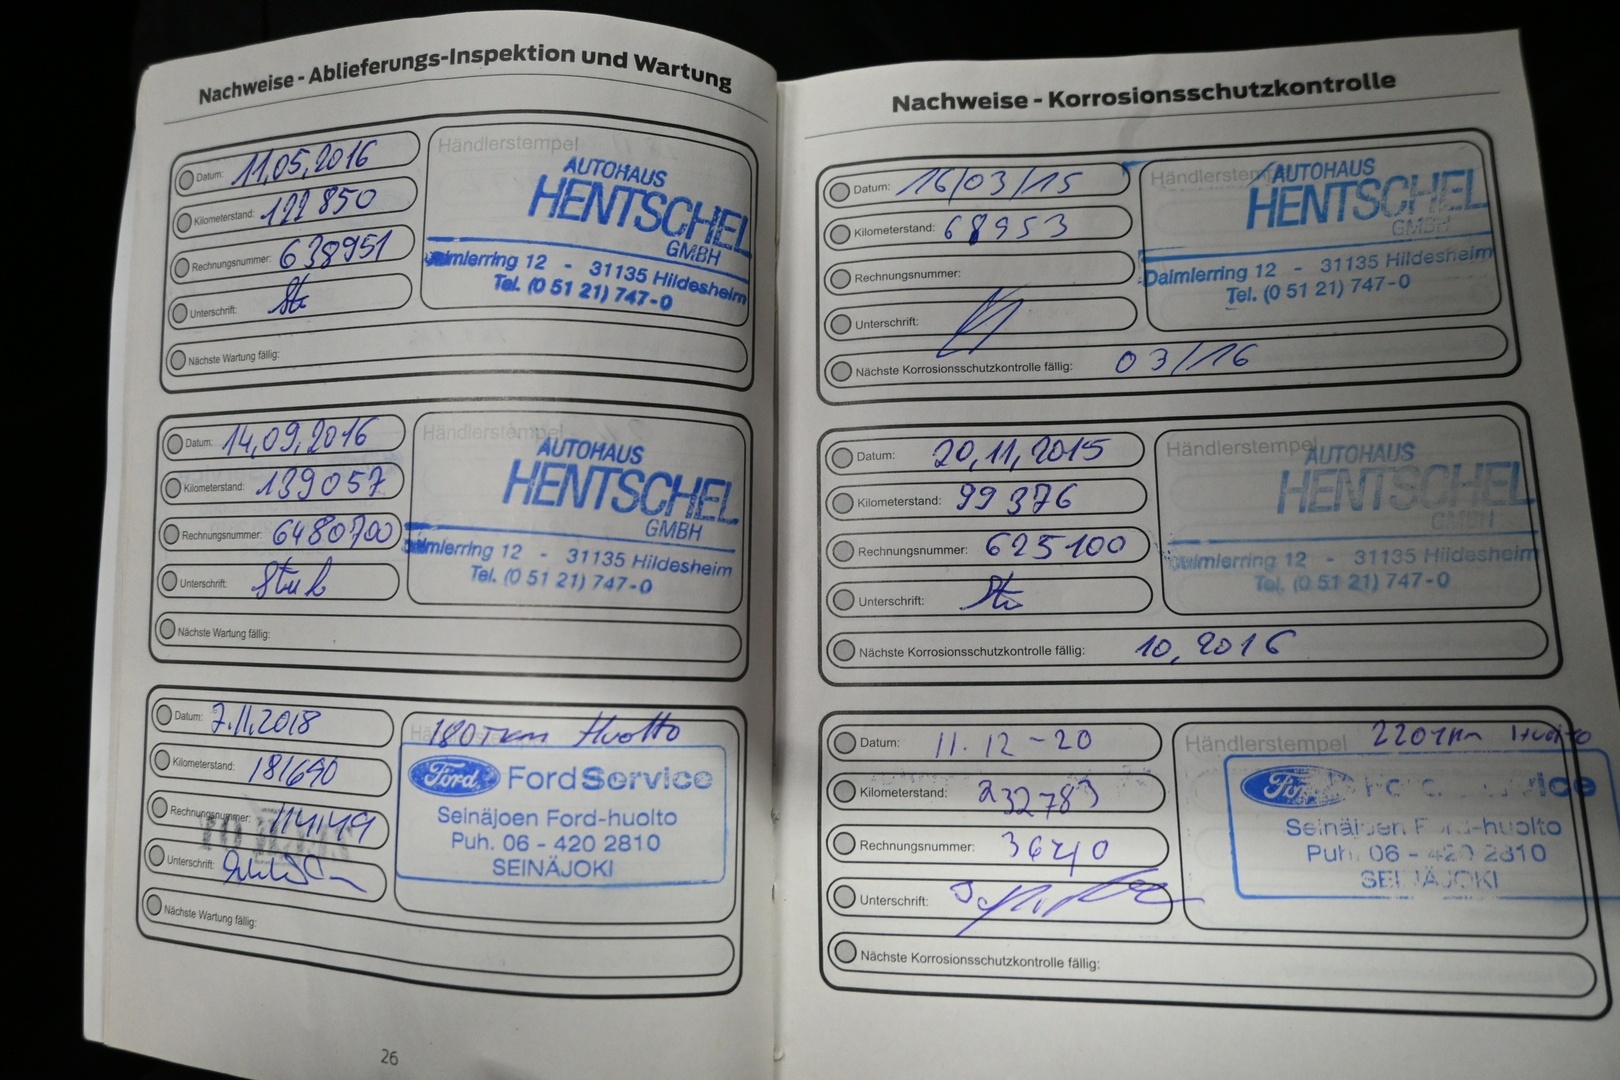 Nachweise - Ablieferungs-Inspektion und Wartung
Datum: 11,05,2016
Kilometerstand: 122 850
Rechnungsnummer: 638951
Unterschrift:
Nächste Wartung fällig:
Händlerstempel
AUTOHAUS
HENTSCHEL
GMBH
Daimlerring 12 - 31135 Hildesheim
Tel. (0 51 21) 747-0
Datum: 14,09,2016
Kilometerstand: 139057
Rechnungsnummer: 6480700
Unterschrift:
Nächste Wartung fällig:
Händlerstempel
AUTOHAUS
HENTSCHEL
GMBH
Daimlerring 12 - 31135 Hildesheim
Tel. (0 51 21) 747-0
Datum: 7.11.2018
Kilometerstand: 181690
Rechnungsnummer: 114149
Unterschrift:
Nächste Wartung fällig:
180Tkm Huolto
Ford FordService
Seinäjoen Ford-huolto
Puh. 06 - 420 2810
SEINÄJOKI
26
Nachweise - Korrosionsschutzkontrolle
Datum: 16/03/15
Kilometerstand: 68953
Rechnungsnummer:
Unterschrift:
Nächste Korrosionsschutzkontrolle fällig: 03/16
Händlerstempel
AUTOHAUS
HENTSCHEL
GMBH
Daimlerring 12 - 31135 Hildesheim
Tel. (0 51 21) 747-0
Datum: 20,11,2015
Kilometerstand: 99376
Rechnungsnummer: 625100
Unterschrift:
Nächste Korrosionsschutzkontrolle fällig: 10,2016
Händlerstempel
AUTOHAUS
HENTSCHEL
GMBH
Daimlerring 12 - 31135 Hildesheim
Tel. (0 51 21) 747-0
Datum: 11.12-20
Kilometerstand: 232783
Rechnungsnummer: 36210
Unterschrift:
Nächste Korrosionsschutzkontrolle fällig:
Händlerstempel 220Tkm Huolto
Ford FordService
Seinäjoen Ford-huolto
Puh. 06 - 420 2810
SEINÄJOKI